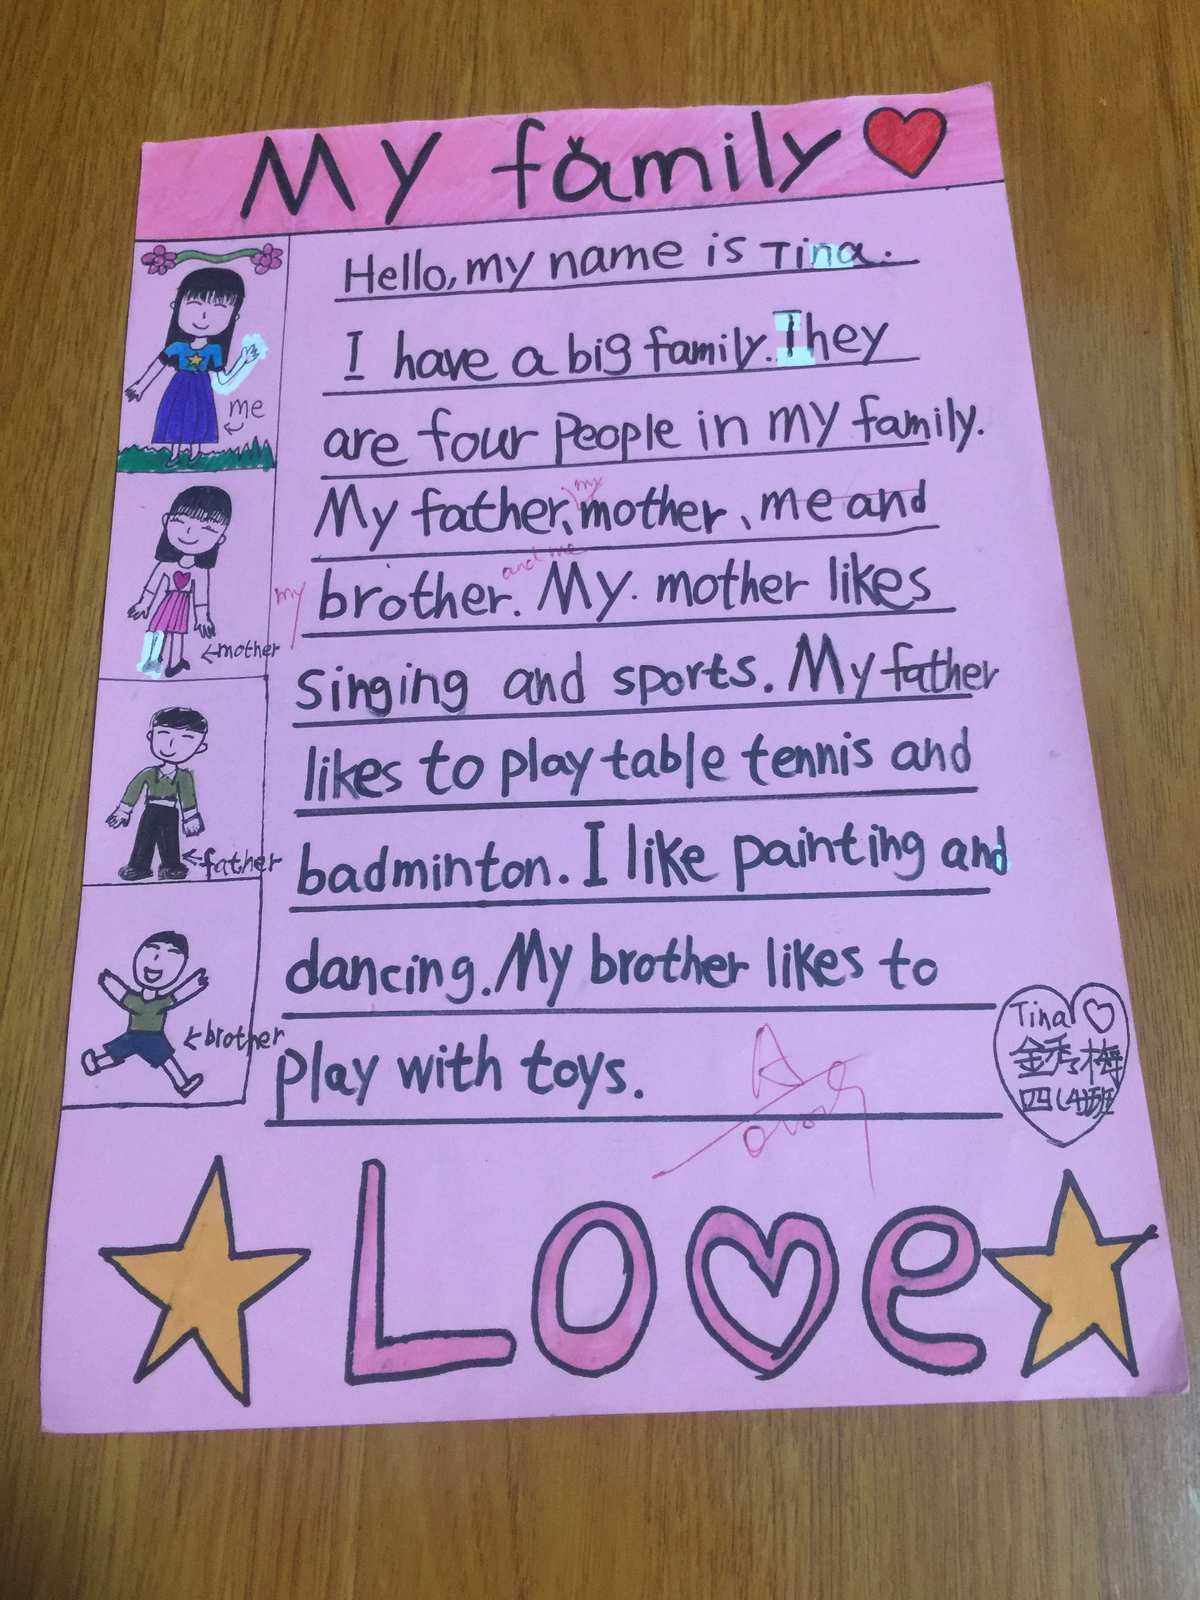 My family
Hello, my name is Tina.
I have a big family. They
are four People in my family.
My father、my mother、me and
my brother. and me My. mother likes
singing and sports. My father
likes to play table tennis and
badminton. I like painting and
dancing. My brother likes to
play with toys.
me
←mother
←father
←brother
A
Tina
金秀梅
四(4)班
Love